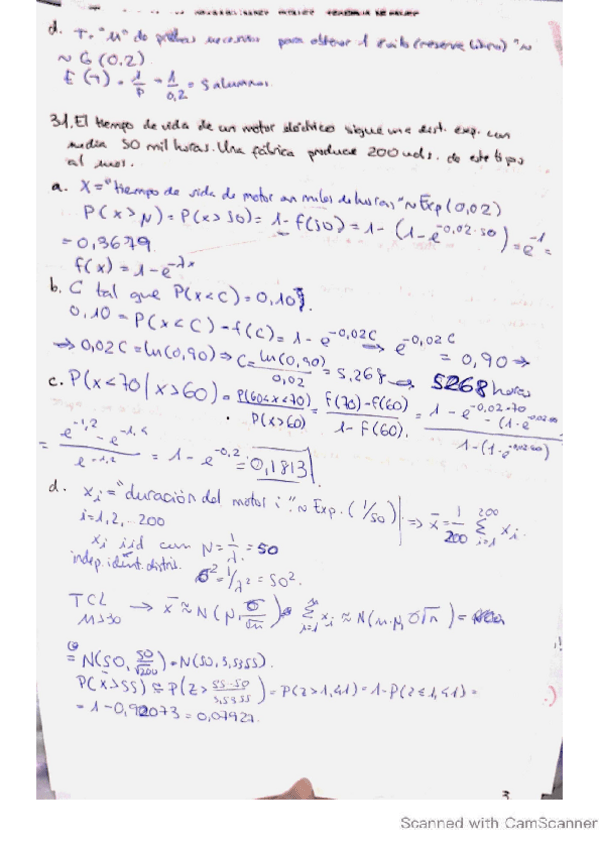 d. T = "Nº de pruebas necesarias para obtener 1 éxito (reserve libro)" ~
~ G (0.2)
E(T) = 1/p = 1/0,2 = 5 alumnos.
31. El tiempo de vida de un motor eléctrico sigue una dist. exp. con
media 50 mil horas. Una fábrica produce 200 uds. de este tipo
al mes.
a. X = "tiempo de vida de motor en miles de horas" ~ Exp (0,02)
P(x > μ) = P(x > 50) = 1 - f(50) = 1 - (1 - e^-0,02·50) = e^-1 =
= 0,3679
f(x) = 1 - e^-λx
b. C tal que P(x < C) = 0,10
0,10 = P(x < C) = f(C) = 1 - e^-0,02C → e^-0,02C = 0,90 →
→ 0,02C = ln(0,90) → C = ln(0,90)/0,02 = 5,268 → 5268 horas
c. P(x < 70 | x > 60) = P(60 < x < 70)/P(x > 60) = f(70) - f(60)/1 - f(60). = 1 - e^-0,02·70 - (1 - e^-0,02·60)/1 - (1 - e^-0,02·60)
= e^-1,2 - e^-1,4/e^-1,2 = 1 - e^-0,2 = 0,1813
d. xi = "duración del motor i" ~ Exp. (1/50) ⇒ x̄ = 1/200 Σ xi.
i = 1, 2, ... 200
xi iid con μ = 1/λ = 50
indep. ident. distrib. σ² = 1/λ² = 50².
TCL → x̄ ≈ N(μ, σ/√n) Σ xi ≈ N(n·μ, σ√n) =
n > 30
= N(50, 50/√200) = N(50, 3,5355).
P(x̄ > 55) ≅ P(z > 55-50/3,5355) = P(z > 1,41) = 1 - P(z ≤ 1,41) =
= 1 - 0,92073 = 0,07927.
3
Scanned with CamScanner